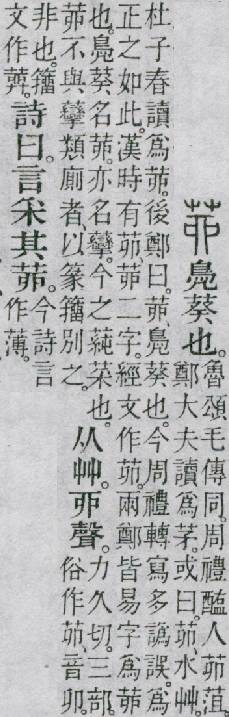 茆鳧葵也。
魯頌毛傳同。周禮醢人茆菹。
鄭大夫讀爲茅。或曰。茆、水艸。
杜子春讀爲茆。後鄭曰。茆、鳧葵也。今周禮轉寫多譌誤。爲
正之如此。漢時有茆、茆二字。經文作茆。兩鄭皆易字爲茆
也。鳧葵名茆。亦名攣。今之蒓菜也。
茆不與攣類廁者。以篆籒別之。
从艸。丣聲。
力久切。三部。
俗作茆。音卯。
非也。籒
文作
詩曰。言采其茆。
今詩言
作薄。